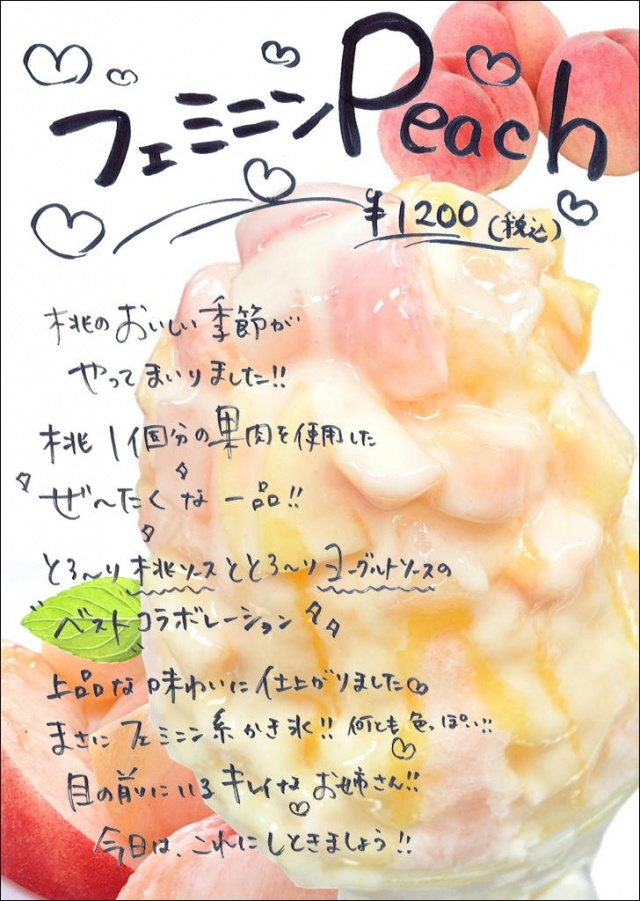 フェミニンPeach
¥1200(税込)
桃のおいしい季節が
やってまいりました!!
桃1個分の果肉を使用した
ぜ〜たくな一品!!
とろ〜り桃ソースととろ〜りヨーグルトソースの
"ベストコラボレーション"
上品な味わいに仕上がりました♡
まさにフェミニン系かき氷!!何とも色っぽい!!
目の前にいるキレイなお姉さん!!
今日は、これにしときましょう!!